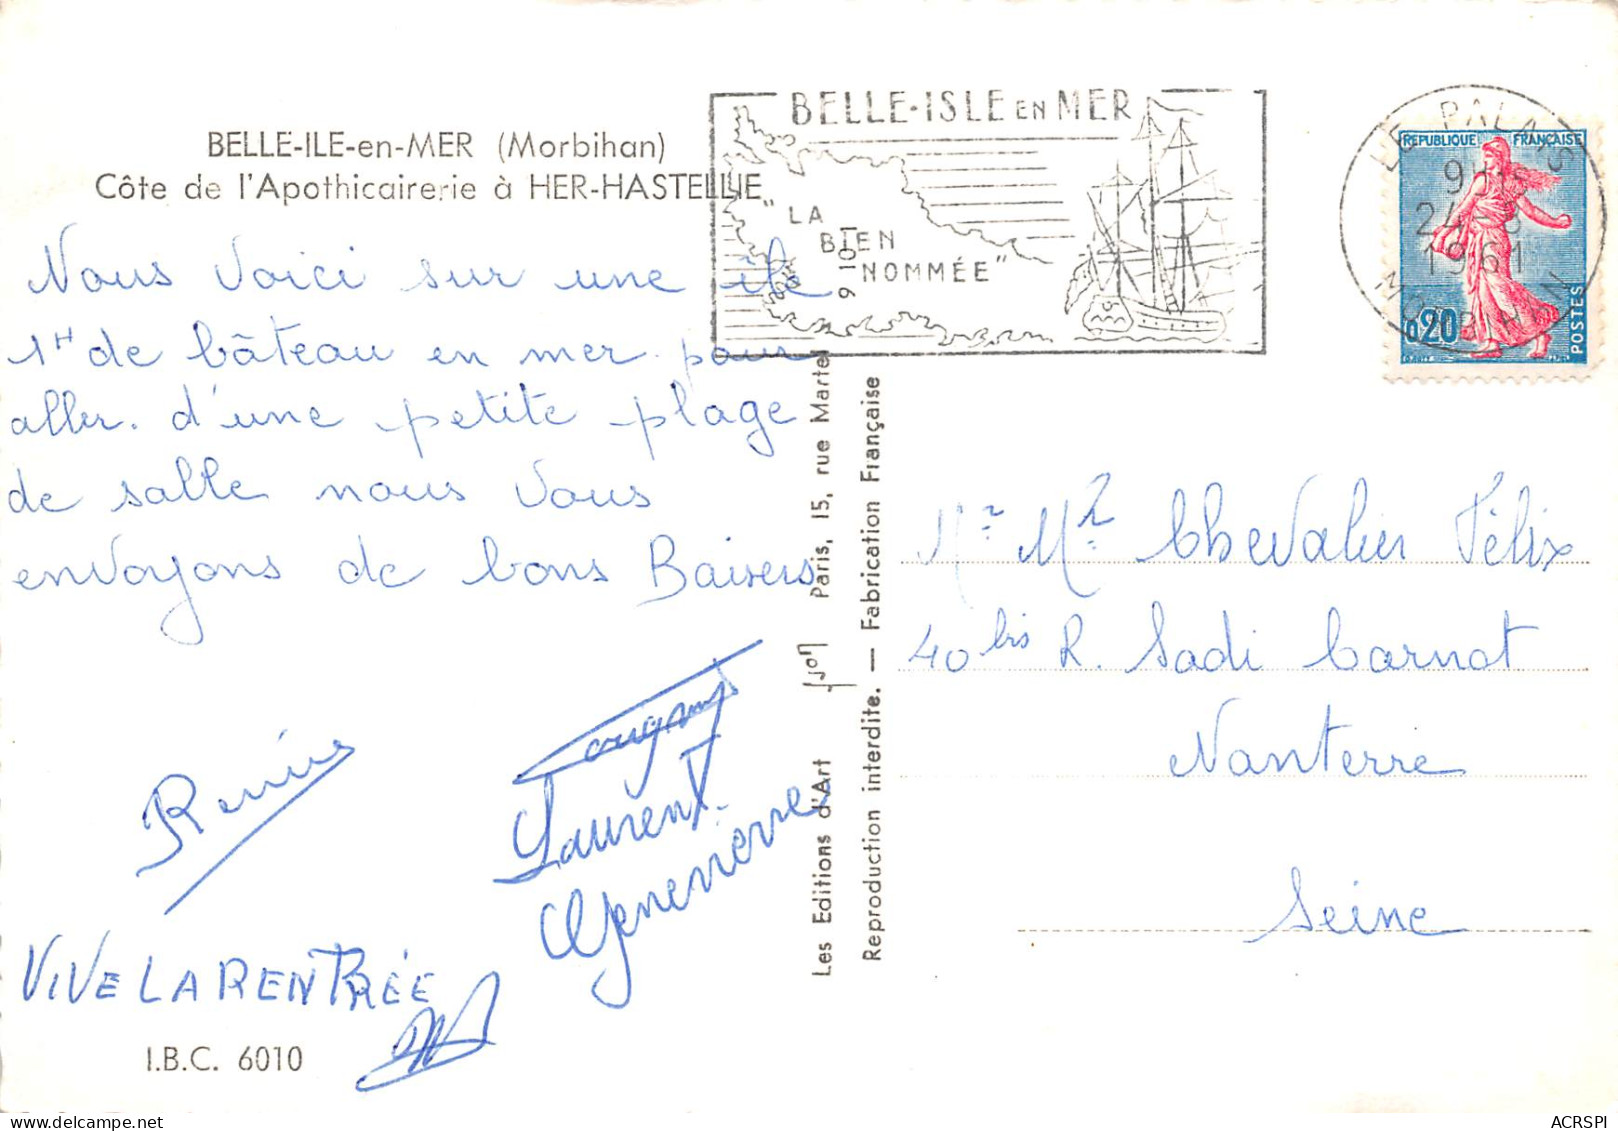 BELLE-ILE-en-MER (Morbihan)
Côte de l'Apothicairerie à HER-HASTELLIE
Nous Voici sur une ile
1H de bâteau en mer pour
aller. d'une petite plage
de sable nous Vous
envoyons de bons Baisers
Laurent
Genevieve
VIVE LA RENTRÉE
I.B.C. 6010
BELLE-ISLE EN MER
"LA
BIEN
NOMMÉE"
LE PALAIS
24-8
1961
MORBIHAN
REPUBLIQUE FRANÇAISE
0,20
POSTES
Les Editions d'Art Paris, 15, rue Martel
Reproduction interdite. — Fabrication Française
Mr Me Chevalier Félix
40 bis R. Sadi Carnot
Nanterre
Seine
delcampe.net
ACRSPI